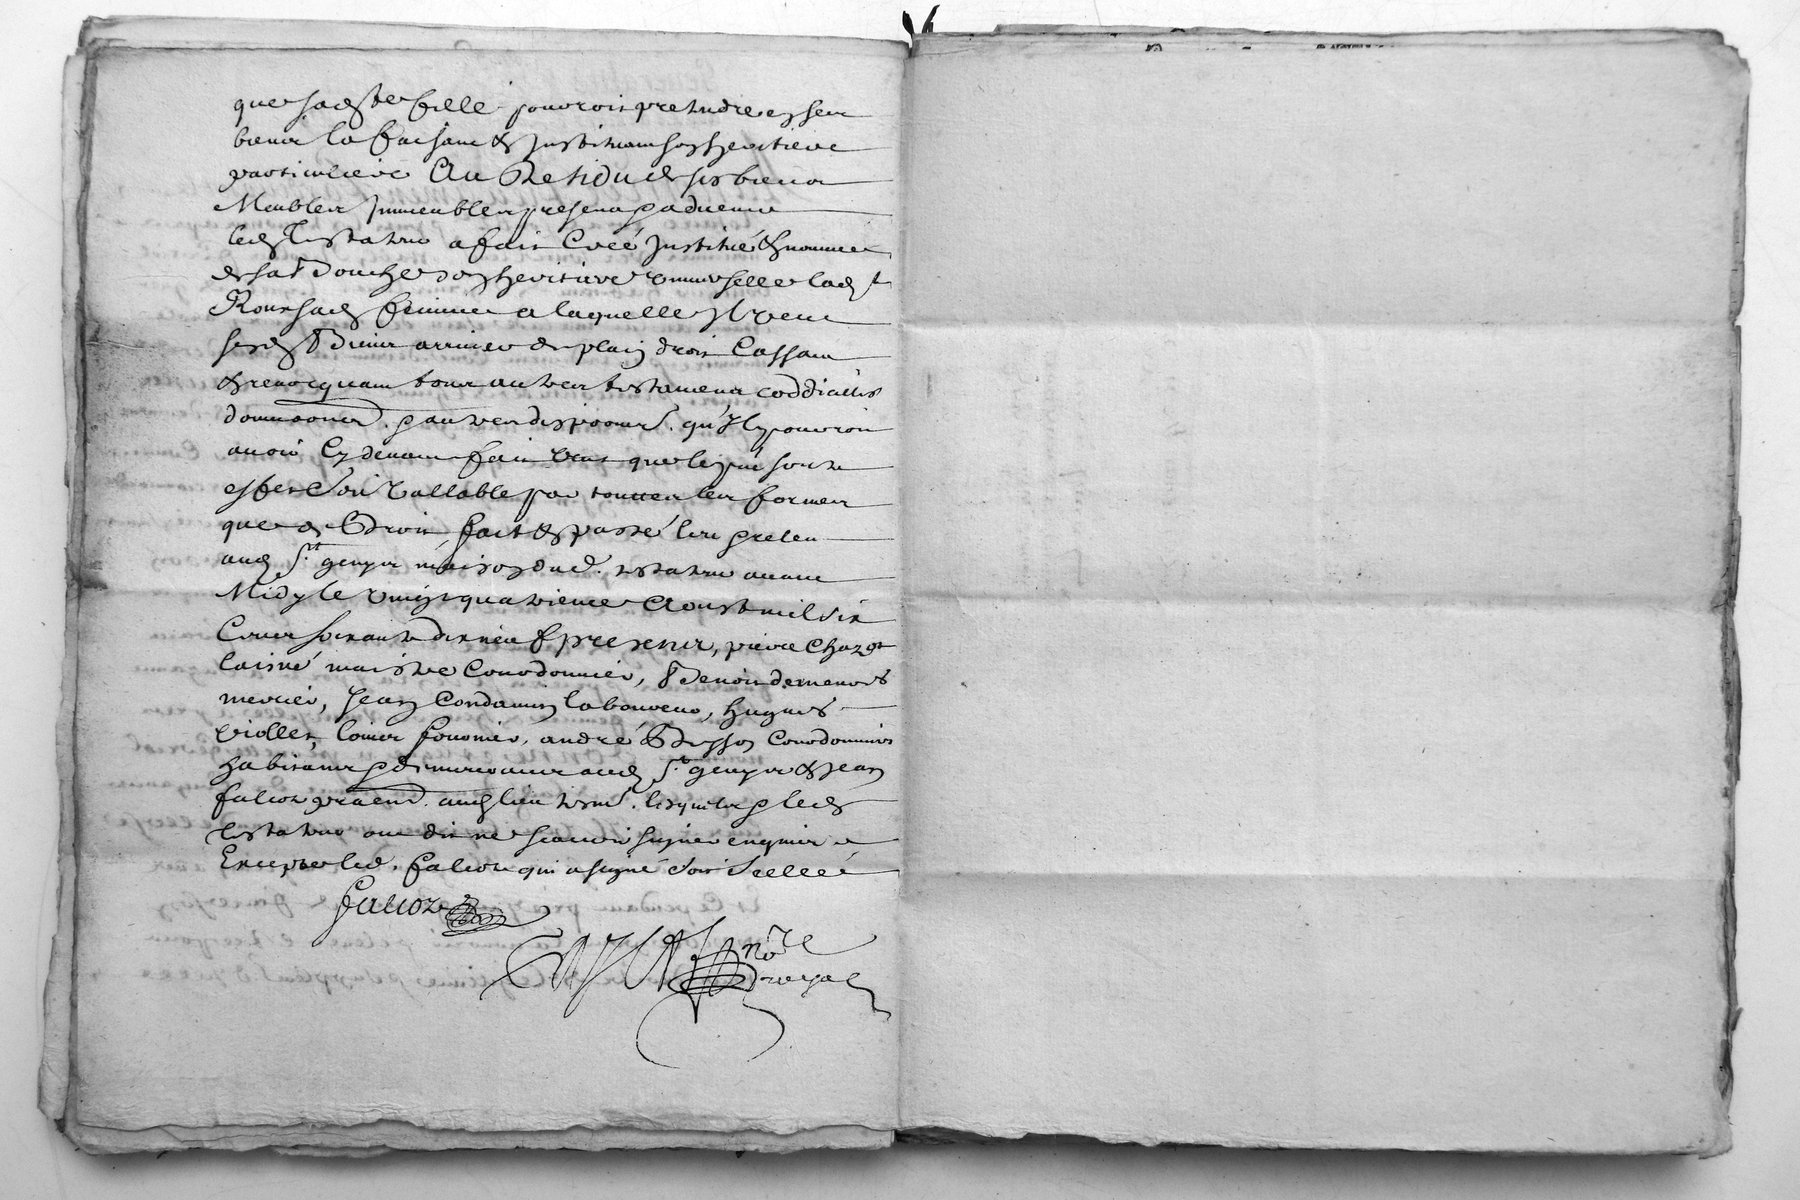 que sad te fille pouroit pretendre en ses
biens la faisant & instituant son heritiere
particuliere Au Residu de ses biens
Meubles immeubles presens & advenir
led testateur a fait créé institué & nommé
de sa bouche son heritiere universelle lad te
sad femme a laquelle Il veut
sesd biens arriver de plain droit Cassant
& revocquant tous autres testamens coddicilles
donnaons & autres dispoons qu'Il pouroit
avoir Cy devant fait veut que le pnt sorte
effet & soit vallable par touttes les formes
que de droit, fait & passé leu & releu
aud St genys maison dud. testateur avant
Midy le vingt quatrieme Aoust mil six
Cens soixante dix neuf presens, pierre Chazot
laisné maistre Courdonnier, benoit
mercier, Jean Condamin laboureur, hugues
viollet, fournier, andré Courdonnier
habitans & demeurans aud St genys & Jean
falcoz pratn. aud lieu tesm. lesquels & led
testateur ont dit ne scavoir signer enquis
Excepte led. falcoz qui a signé soit scellé
falcoz
nore
royal